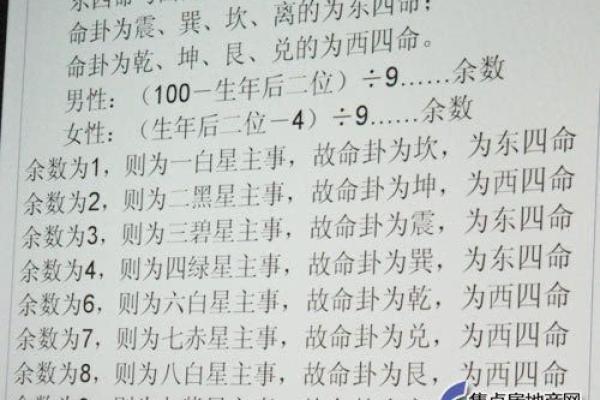 命卦为震、巽、坎、离的为东四命；
命卦为乾、坤、艮、兑的为西四命。
男性：（100－生年后二位）÷9……余数
女性：（生年后二位－4）÷9……余数
余数为1，则为一白星主事，故命卦为坎，为东四命
余数为2，则为二黑星主事，故命卦为坤，为西四命
余数为3，则为三碧星主事，故命卦为震，为东四命
余数为4，则为四绿星主事，故命卦为巽，为东四命
余数为6，则为六白星主事，故命卦为乾，为西四命
余数为7，则为七赤星主事，故命卦为兑，为西四命
余数为8，则为八白星主事，故命卦为艮，为西四命
焦点房地产网